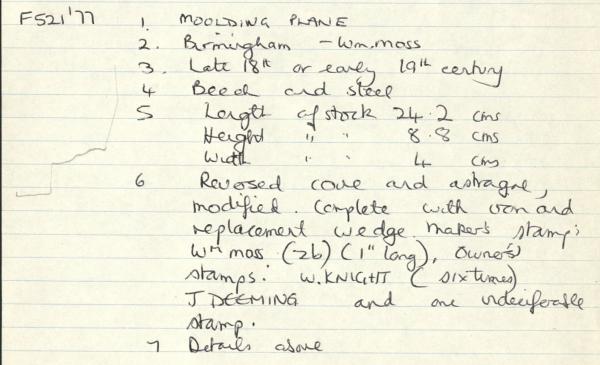 F521'77 1. MOOLDING PLANE
2. Birmingham - Wm. Moss
3. Late 18th or early 19th century
4 Beech and steel
5 Length of stock 24.2 cms
Height " " 8.8 cms
Width " " 4 cms
6 Reversed cove and astragne,
modified. Complete with iron and
replacement wedge. Maker's stamp:
Wm moss (2b) (1" long), Owner's
stamps: W. KNIGHT (six times)
J DEEMING and one indeciferable
stamp.
7 Details above